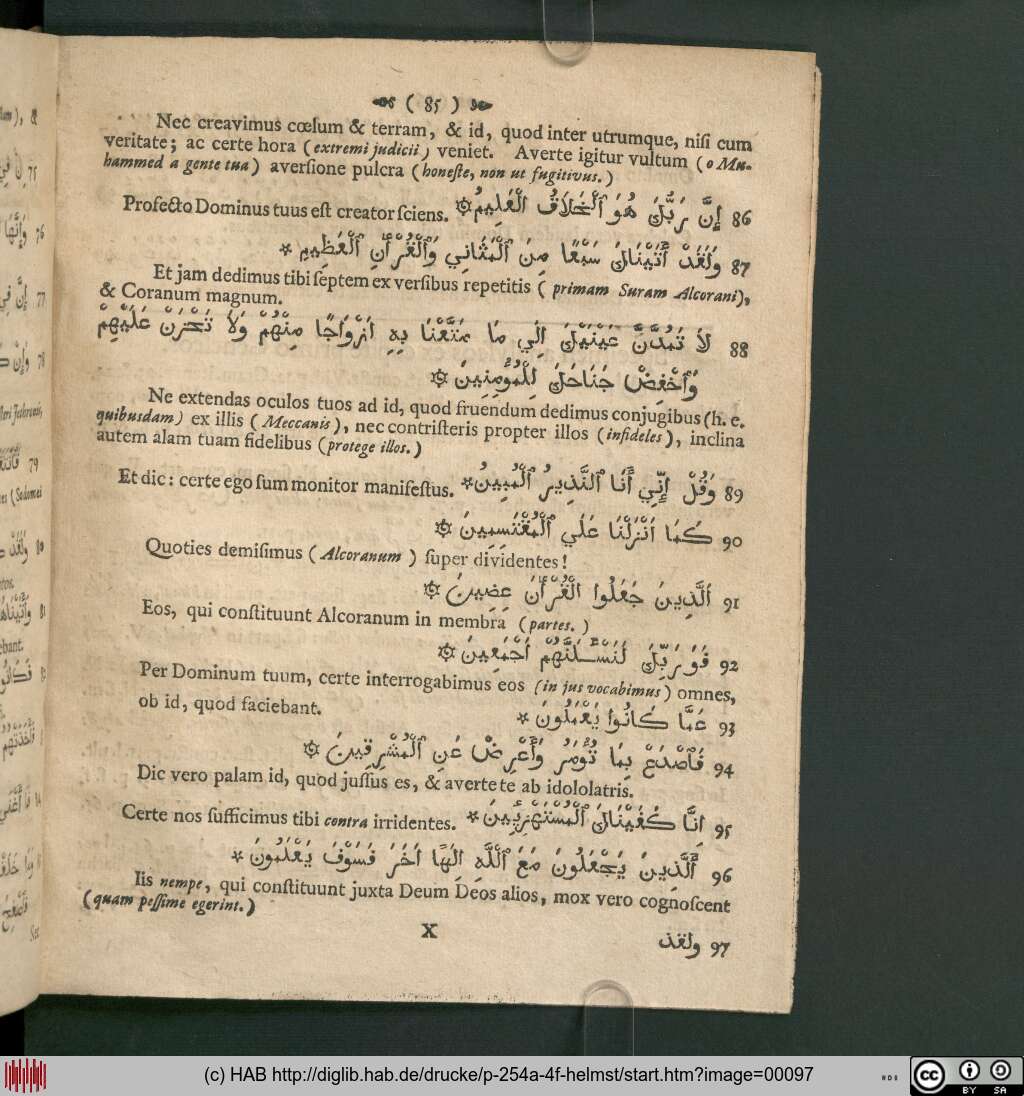 ( 85 )
Nec creavimus cœlum & terram, & id, quod inter utrumque, nisi cum
veritate; ac certe hora (extremi judicii) veniet. Averte igitur vultum (o Mu-
hammed a gente tua) aversione pulcra (honeste, non ut fugitivus.)
Profecto Dominus tuus est creator sciens. ۞ إِنَّ رَبُّكَ هُوَ ٱلْخَلَاقُ ٱلْعَلِيمُ 86
وَلَقَدْ أَتَيْنَاكَ سَبْعًا مِنَ ٱلْمَثَانِي وَٱلْقُرْأَنِ ٱلْعَظِيمِ * 87
Et jam dedimus tibi septem ex versibus repetitis ( primam Suram Alcorani),
& Coranum magnum.
لَا تَمُدَّنَّ عَيْنَيْكَ إِلَي مَا مَتَّعْنَا بِهِ أَزْوَاجًا مِنْهُمْ وَلَا تَحْزَنْ عَلَيْهِمْ 88
وَٱخْفِضْ جَنَاحَكَ لِلْمُؤْمِنِينَ ۞
Ne extendas oculos tuos ad id, quod fruendum dedimus conjugibus (h. e.
quibusdam) ex illis ( Meccanis), nec contristeris propter illos (infideles), inclina
autem alam tuam fidelibus (protege illos.)
Et dic: certe ego sum monitor manifestus. * وَقُلْ إِنِّي أَنَا ٱلنَّذِيرُ ٱلْمُبِينُ 89
كَمَا أَنْزَلْنَا عَلَي ٱلْمُقْتَسِمِينَ ۞ 90
Quoties demisimus ( Alcoranum ) super dividentes!
ٱلَّذِينَ جَعَلُوا ٱلْقُرْأَنَ عِضِينَ ۞ 91
Eos, qui constituunt Alcoranum in membra (partes. )
فَوَ رَبِّكَ لَنَسْئَلَنَّهُمْ أَجْمَعِينَ ۞ 92
Per Dominum tuum, certe interrogabimus eos (in jus vocabimus) omnes,
ob id, quod faciebant. * عَمَّا كَانُوا يَعْمَلُونَ 93
فَٱصْدَعْ بِمَا تُؤْمَرُ وَأَعْرِضْ عَنِ ٱلْمُشْرِقِينَ ۞ 94
Dic vero palam id, quod jussus es, & averte te ab idololatris.
Certe nos sufficimus tibi contra irridentes. * إِنَّا كَفَيْنَاكَ ٱلْمُسْتَهْزِئِينَ 95
ٱلَّذِينَ يَجْعَلُونَ مَعَ ٱللَّهِ إِلَهًا أَخَرَ فَسَوْفَ يَعْلَمُونَ * 96
Iis nempe, qui constituunt juxta Deum Deos alios, mox vero cognoscent
(quam pessime egerint.)
X
ولقد 97
(c) HAB http://diglib.hab.de/drucke/p-254a-4f-helmst/start.htm?image=00097
cc BY SA